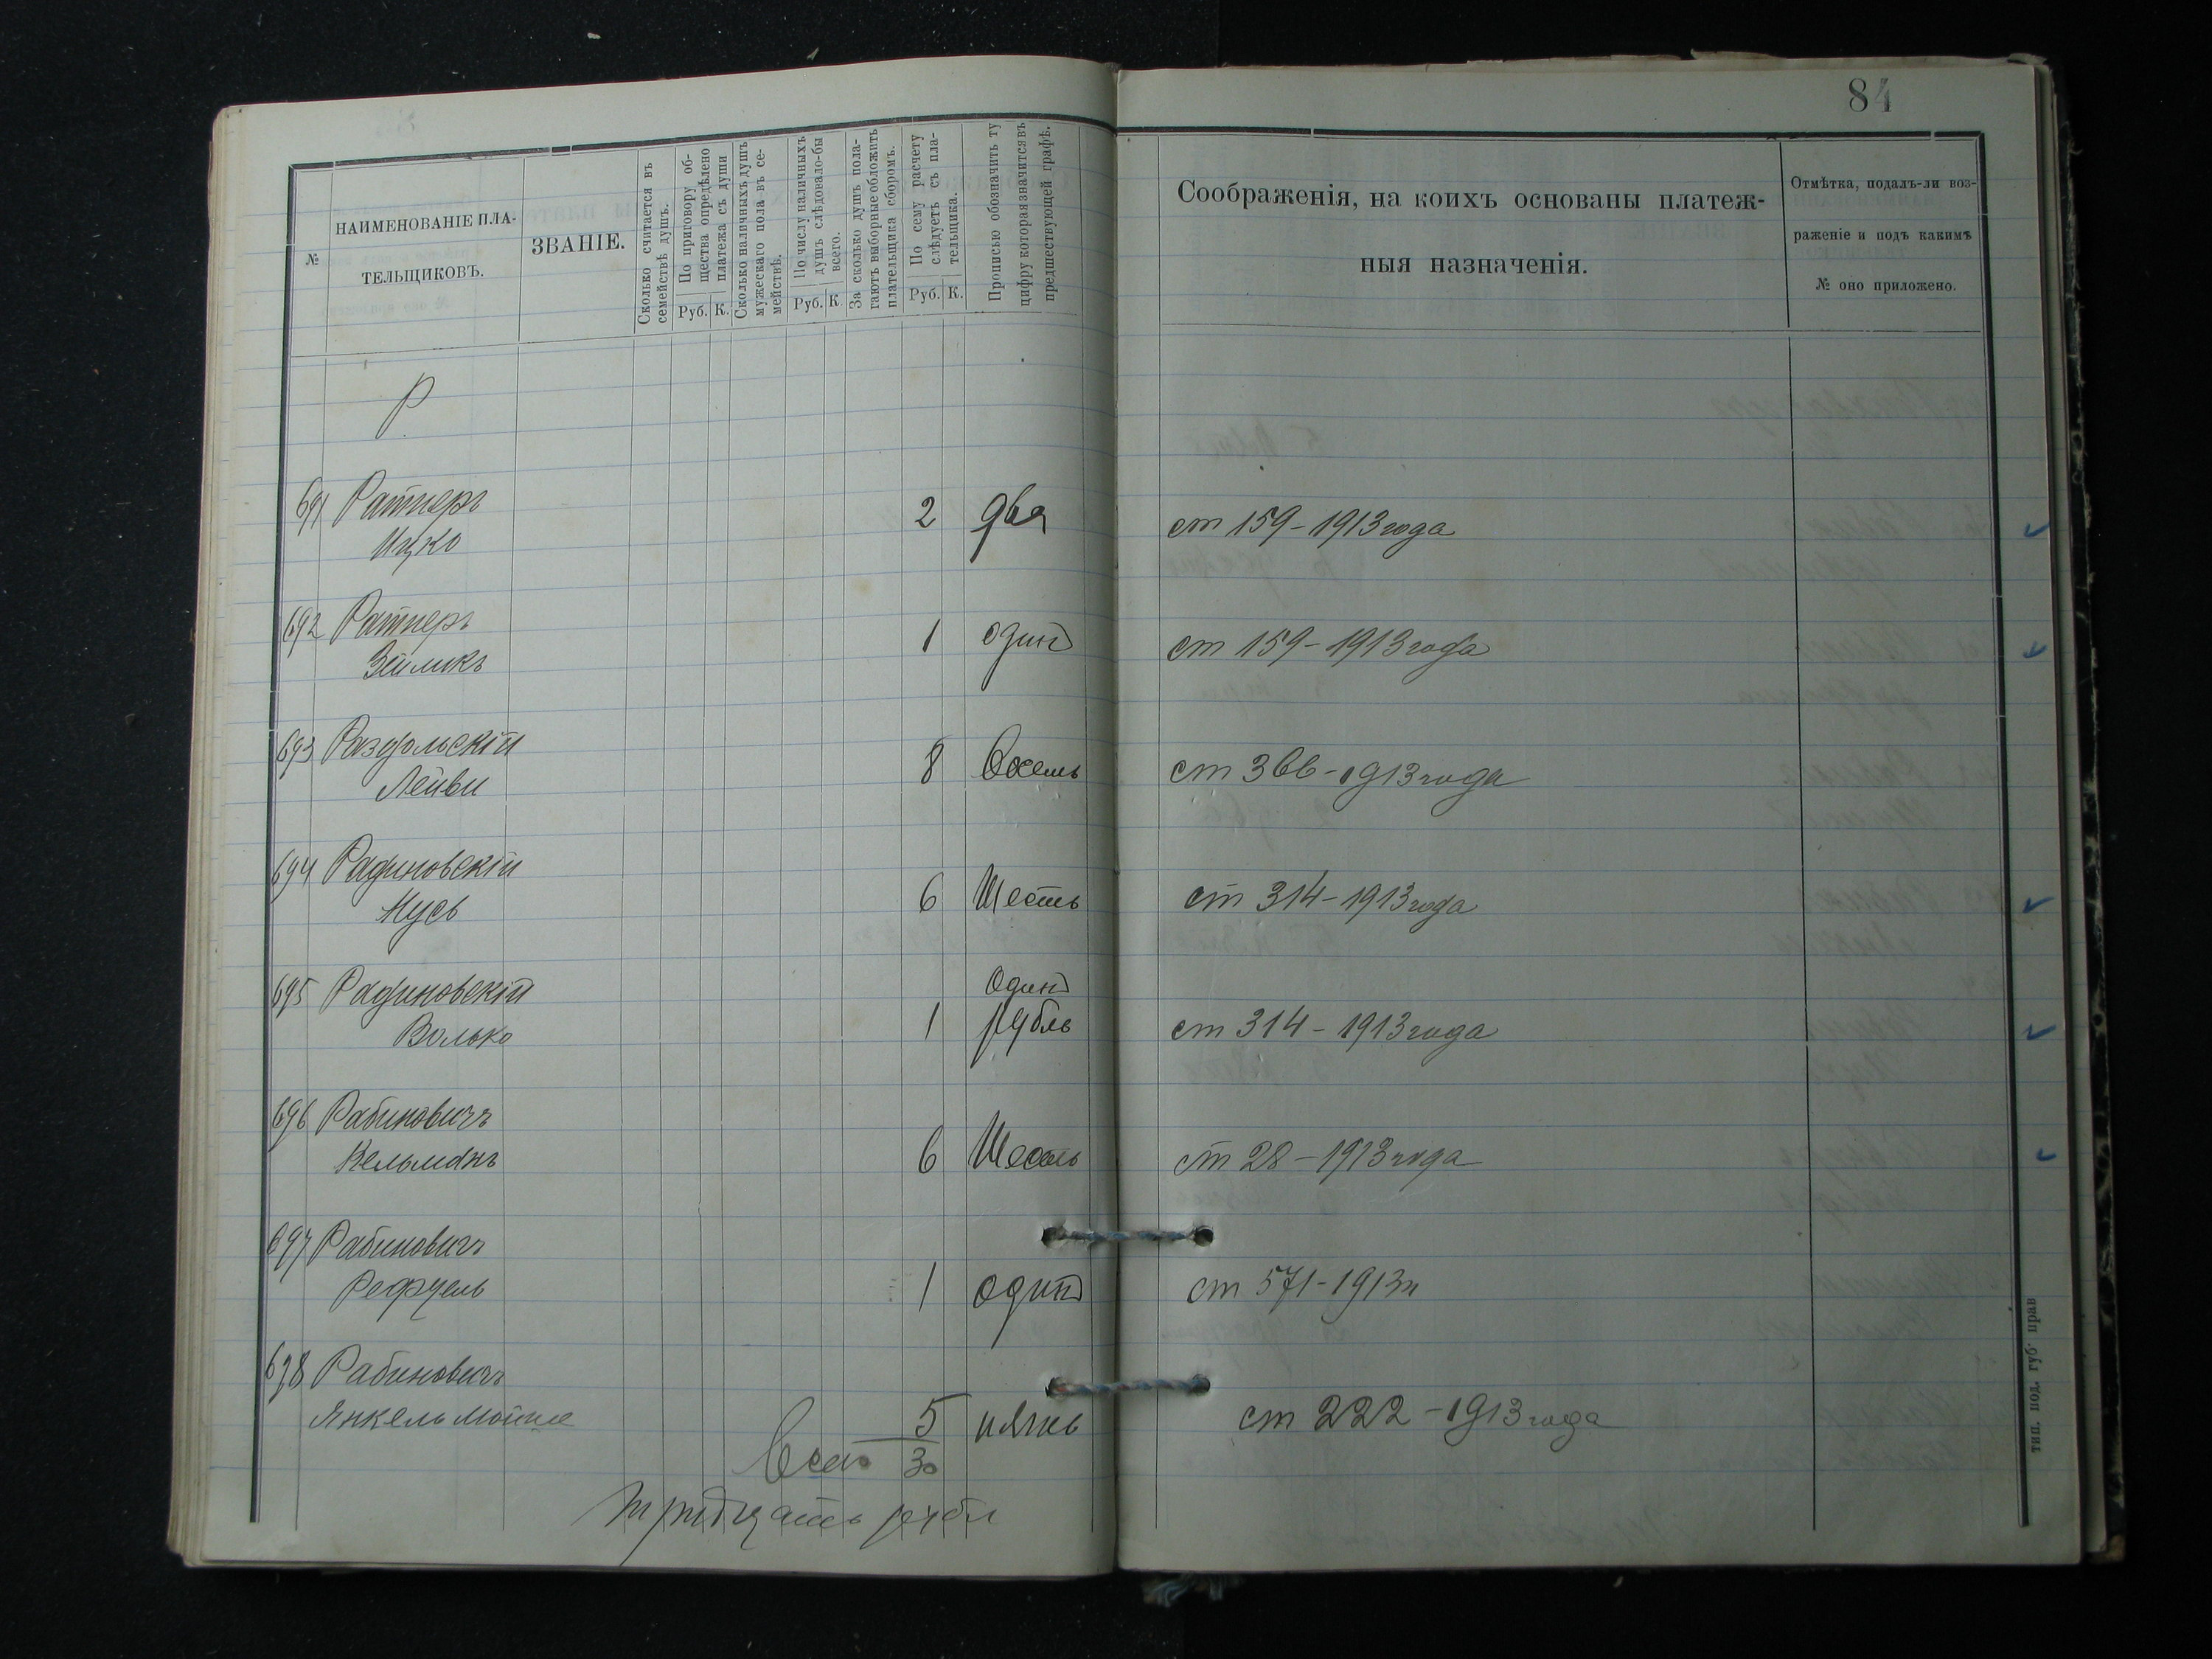 84
№
НАИМЕНОВАНІЕ ПЛА-
ТЕЛЬЩИКОВЪ.
ЗВАНІЕ.
Сколько считается въ
семействѣ душъ.
По приговору об-
щества опредѣлено
платежа съ души
Руб. К.
Сколько наличныхъ душъ
мужескаго пола въ се-
мействѣ.
По числу наличныхъ
душъ слѣдовало-бы
всего.
Руб. К.
За сколько душъ пола-
гаютъ выборные обложить
плательщика сборомъ.
По сему расчету
слѣдуетъ съ пла-
тельщика.
Руб. К.
Прописью обозначить ту
цифру которая значится въ
предшествующей графѣ.
Соображенія, на коихъ основаны платеж-
ныя назначенія.
Отмѣтка, подалъ-ли воз-
раженіе и подъ какимъ
№ оно приложено.
Р
691 Ратнеръ
Ицко 2 два ст 159-1913 года
692 Ратнеръ
Зеликъ 1 одинъ ст 159-1913 года
693 Раздольскій
Лейви 8 Восемь ст 366-1913 года
694 Радиновскій
Мусь 6 Шесть ст 314-1913 года
695 Радиновскій Одинъ
Волько 1 рубль ст 314-1913 года
696 Рабиновичъ
Кельманъ 6 Шесть ст 28-1913 года
697 Рабиновичъ
1 одинъ ст 571-1913 г
698 Рабиновичъ
Янкель Мойше 5 пять ст 222-1913 года
Всего 30
тридцать рубл
тип. под. губ прав